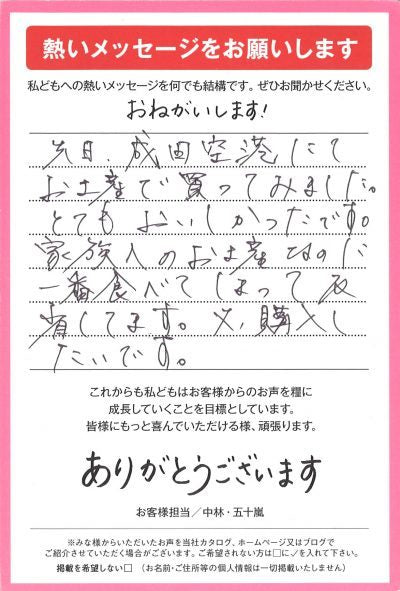 熱いメッセージをお願いします
私どもへの熱いメッセージを何でも結構です。ぜひお聞かせください。
おねがいします!
先日、成田空港にて
お土産で買ってみました。
とてもおいしかったです。
家族へのお土産なのに
一番食べてしまって反
省してます。又、購入し
たいです。
これからも私どもはお客様からのお声を糧に
成長していくことを目標としています。
皆様にもっと喜んでいただける様、頑張ります。
ありがとうございます
お客様担当／中林・五十嵐
※みな様からいただいたお声を当社カタログ、ホームページ又はブログで
ご紹介させていただく場合がございます。ご希望されない方は□に✓を入れて下さい。
掲載を希望しない□ （お名前・ご住所等の個人情報は一切掲載いたしません）